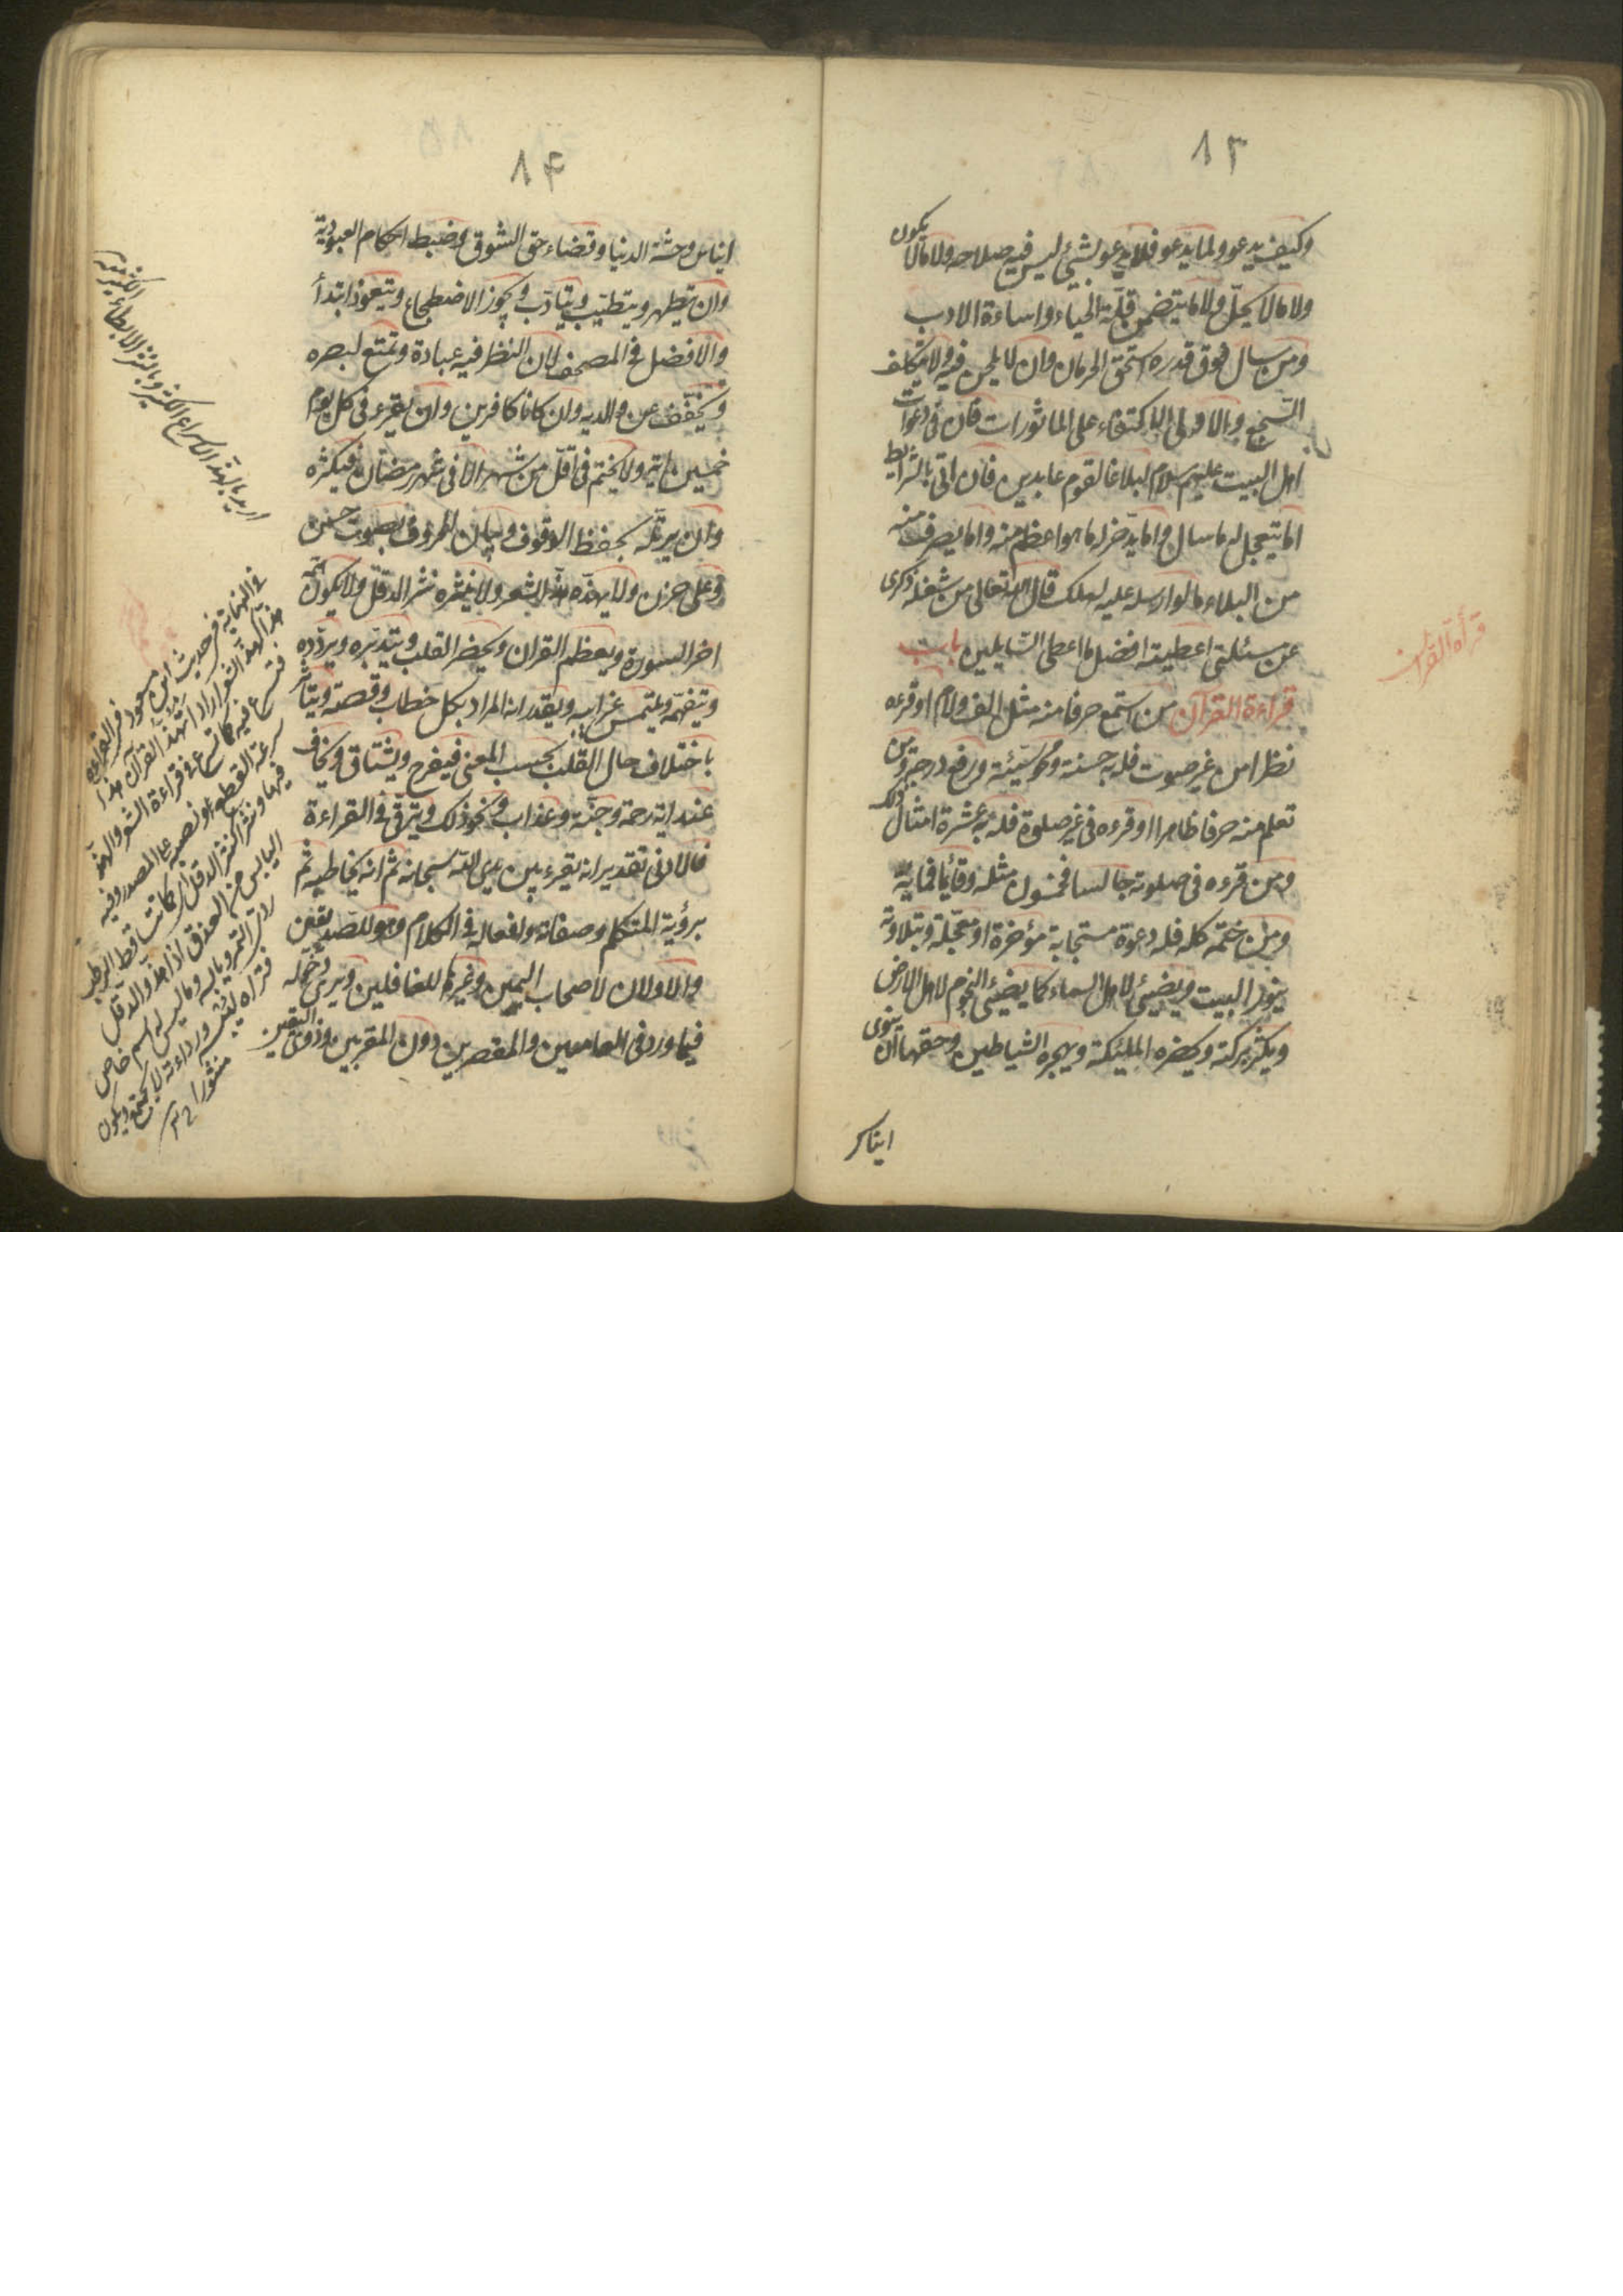 ١٣
وكيف يدعو ولما يدعو فلا يدعو لشيئ ليس فيه صلاحه ولا مالا يكون
ولا مالا يحلّ ولا ما يتضمن قلّة الحياء واساءة الادب
ومن سال فوق قدره استحق الحرمان وان لا يلحن فيه ولا يتكلف
السجع والاولى الاكتفاء على الماثورات فان فى دعوات
اهل البيت عليهم سلام لبلاغا لقوم عابدين فان اتى بالشرايط
اما يتعجل له ما سال واما يدّخر له ما هو اعظم منه واما يصرف منه
من البلاء ما لو ارسله عليه لهلك قال الله تعالى من شغله ذكرى
عن مسئلتى اعطيته افضل ما اعطى السّايلين باب
قراءة القرآن من استمع حرفا منه مثل الف ولام او قرءه
قرأة القران
نظرا من غير صوت فله به حسنة ومحو سيّئة ورفع درجة ومن
تعلم منه حرفا ظاهرا او قرءه فى غير صلوة فله به عشرة امثال ذلك
ومن قرءه فى صلوته جالسا فخمسون مثله وقائما فمائة
ومن ختمه كله فله دعوة مستجابة مؤخرة او معجّلة وبتلاوته
ينور البيت ويضيئ لاهل السماء كما يضيئ النجوم لاهل الارض
ويكثر بركته ويحضره الملئكة ويهجره الشياطين وحقها ان ينوى
ايناس
١٤
ايناس وحشة الدنيا وقضاء حق الشوق وضبط احكام العبودية
وان يتطهر ويتطيّب ويتادّب ويجوز الاضطجاع ويتعوذ ابتدأ
والافضل فى المصحف لان النظر فيه عبادة وتمتع لبصره
ويخفف عن والديه وان كانا كافرين وان يقرء فى كل يوم
خمسين اية ولا يختم فى اقلّ من شهر الا فى شهر رمضان فيكثره
وان يرتّله بحفظ الوقوف وبيان الحروف بصوت حسن
وعلى حزن ولا يهذّه هذّ الشعر ولا ينثره نثر الدقل ولا يكون همّه
اخر السورة ويعظم القران ويحضر القلب ويتدبّره ويردّده
ويتفهّم ويلتمس غرايبه ويقدر انه المراد بكل خطاب وقصة ويتاثّر
باختلاف حال القلب بحسب المعنى فيفرح ويشتاق ويخاف
عند اية رحمة وجنّة وعذاب ونحو ذلك ويترقّى فى القراءة
فالادنى تقدير انه يقرء بين يدى الله سبحانه ثم انه يخاطبه ثم
برؤية المتكلم وصفاته وافعاله فى الكلام وهو للصّديقين
والاولان لاصحاب اليمين وغيرها للغافلين ويرى دخله
فيما ورد فى العاصين والمقصرين دون المقربين وذوى اليقين
اريد بالهذ الاسراع الكثير وبالنثر الابطاء الكثير
فى النهاية فى حديث ابن مسعود فى القراءة
هذا كهذ الشعر اراد اتهذ القرآن هذا
فتسرع فيه كما تسرع فى قراءة الشعر والهذ
سرعة القطع ونصبه على المصدر وفيه
فيها ونثرا كنثر الدقل اى كما تتساقط الرطب
اليابس من العذق اذا هز والدقل
ردى التمر ويابسه وما ليس له اسم خاص
فتراه ليبسه ورداءته لا يجتمع ويكون
منثورا